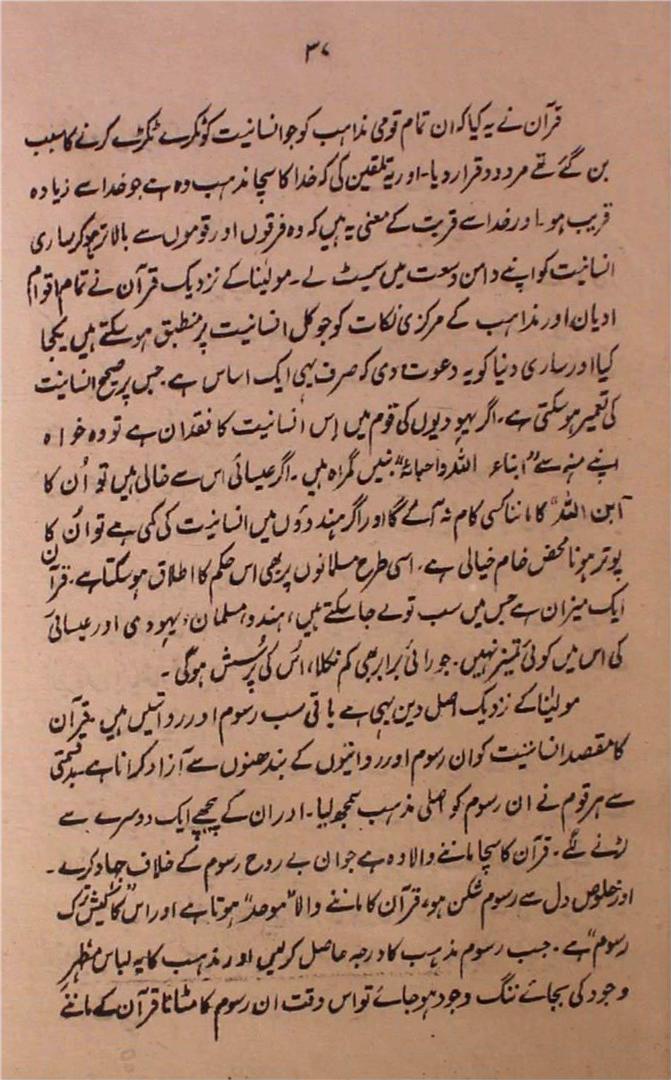 ۳۷
قرآن نے یہ کیا کہ ان تمام قومی مذاہب کو جو انسانیت کو ٹکرے ٹکرے کرنے کا سبب
بن گئے تھے مردود قرار دیا۔ اور یہ تلقین کی کہ خدا کا سچا مذہب وہ ہے جو خدا سے زیادہ
قریب ہو۔ اور خدا سے قربت کے معنی یہ ہیں کہ وہ فرقوں اور قوموں سے بالاتر ہو کر ساری
انسانیت کو اپنے دامن وسعت میں سمیٹ لے۔ مولینا کے نزدیک قرآن نے تمام اقوام
ادیان اور مذاہب کے مرکزی نکات کو جو کل انسانیت پر منطبق ہو سکتے ہیں یکجا
کیا اور ساری دنیا کو یہ دعوت دی کہ صرف یہی ایک اساس ہے جس پر صحیح انسانیت
کی تعمیر ہو سکتی ہے۔ اگر یہودیوں کی قوم میں اس انسانیت کا فقدان ہے تو وہ خواہ
اپنے منہ سے "ابناء اللہ واحباءہ" بنیں گمراہ ہیں۔ اگر عیسائی اس سے خالی ہیں تو اُن کا
"ابن اللہ" کا ماننا کسی کام نہ آئے گا اور اگر ہندوؤں میں انسانیت کی کمی ہے تو اُن کا
پوتر ہونا محض خام خیالی ہے، اسی طرح مسلمانوں پر بھی اس حکم کا اطلاق ہو سکتا ہے۔ قرآن
ایک میزان ہے جس میں سب تولے جا سکتے ہیں، ہندو، مسلمان، یہودی اور عیسائی
کی اس میں کوئی تمیز نہیں۔ جو رائی برابر بھی کم نکلا، اُس کی پُرسش ہوگی۔
مولینا کے نزدیک اصل دین یہی ہے باقی سب رسوم اور روائتیں ہیں، قرآن
کا مقصد انسانیت کو ان رسوم اور روائیتوں کے بندھنوں سے آزاد کرانا ہے بدقسمتی
سے ہر قوم نے ان رسوم کو اصلی مذہب سمجھ لیا۔ اور ان کے پیچھے ایک دوسرے سے
لڑنے لگے۔ قرآن کا سچا ماننے والا وہ ہے جو ان بے روح رسوم کے خلاف جہاد کرے۔
اور خلوص دل سے رسوم شکن ہو، قرآن کا ماننے والا "موحد" ہوتا ہے اور اس کا "کیش ترک
رسوم" ہے۔ جب رسوم مذہب کا درجہ حاصل کرلیں اور مذہب کا یہ لباس مظہرِ
وجود کی بجائے ننگ وجود ہو جائے تو اس وقت ان رسوم کا مٹانا قرآن کے ماننے